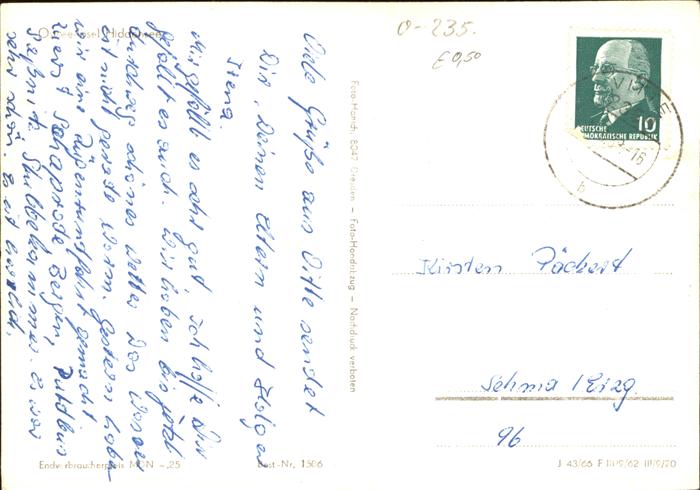 Ostseeinsel Hiddensee
o-235.
€ 0,50
DEUTSCHE
DEMOKRATISCHE REPUBLIK 10
-16
b
Viele Grüße aus Vitte sendet
Dir, Deinen Eltern und Holger
Irena.
Mir gefällt es sehr gut, ich hoffe Dir
gefällt es auch. Wir haben bis jetzt
durchweg schönes Wetter. Das Wasser
ist nicht gerade warm. Gestern haben
wir eine Rügenrundfahrt gemacht
zuerst Schaprode, Bergen, Putbus
Saßnitz, Stubbekammer. Es war
sehr schön. Es ist herrlich.
Foto-Handrick, 8047 Dresden — Foto-Handabzug — Nachdruck verboten
Kirsten Päckert
Sehma / Erzg.
96
Endverbraucherpreis MDN -,25
Best-Nr. 1506
J 43/66 F III/9/62 III/9/20